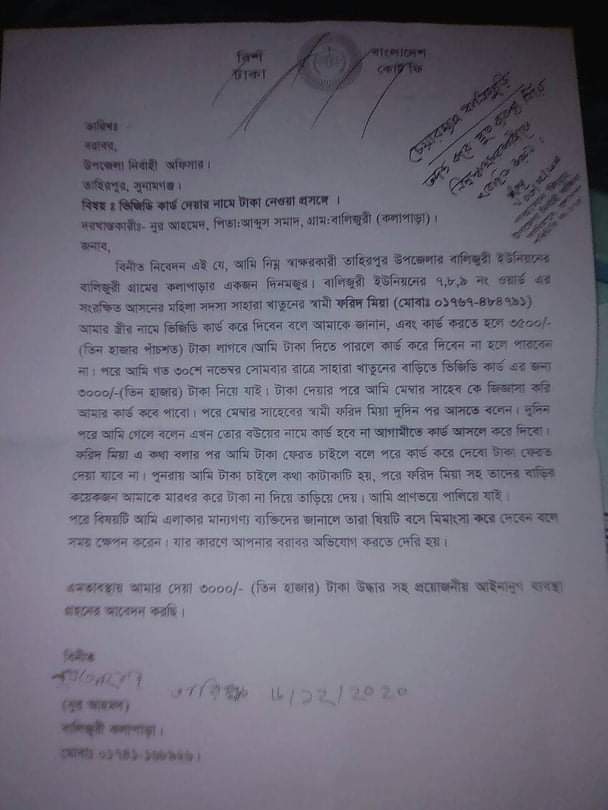 বিশ টাকা
বাংলাদেশ কোর্ট ফি
তারিখঃ
বরাবর,
উপজেলা নির্বাহী অফিসার।
তাহিরপুর, সুনামগঞ্জ।
বিষয় ঃ ভিজিডি কার্ড দেয়ার নামে টাকা নেওয়া প্রসঙ্গে ।
দরখাস্তকারীঃ- নুর আহমেদ, পিতা:আব্দুস সমাদ, গ্রাম:বালিজুরী (কলাপাড়া)।
জনাব,
বিনীত নিবেদন এই যে, আমি নিম্ন স্বাক্ষরকারী তাহিরপুর উপজেলার বালিজুরী ইউনিয়নের
বালিজুরী গ্রামের কলাপাড়ার একজন দিনমজুর। বালিজুরী ইউনিয়নের ৭,৮,৯ নং ওয়ার্ড এর
সংরক্ষিত আসনের মহিলা সদস্য সাহারা খাতুনের স্বামী ফরিদ মিয়া (মোবাঃ
আমার স্ত্রীর নামে ভিজিডি কার্ড করে দিবেন বলে আমাকে জানান, এবং কার্ড করতে হলে ৩৫০০/-
(তিন হাজার পাঁচশত) টাকা লাগবে।আমি টাকা দিতে পারলে কার্ড করে দিবেন না হলে পারবেন
না। পরে আমি গত ৩০শে নভেম্বর সোমবার রাত্রে সাহারা খাতুনের বাড়িতে ভিজিডি কার্ড এর জন্য
৩০০০/-(তিন হাজার) টাকা নিয়ে যাই। টাকা দেয়ার পরে আমি মেম্বার সাহেব কে জিজ্ঞাসা করি
আমার কার্ড কবে পাবো। পরে মেম্বার সাহেবের স্বামী ফরিদ মিয়া দুদিন পর আসতে বলেন। দুদিন
পরে আমি গেলে বলেন এখন তোর বউয়ের নামে কার্ড হবে না আগামীতে কার্ড আসলে করে দিবো।
ফরিদ মিয়া এ কথা বলার পর আমি টাকা ফেরত চাইলে বলে পরে কার্ড করে দেবো টাকা ফেরত
দেয়া যাবে না। পুনরায় আমি টাকা চাইলে কথা কাটাকাটি হয়, পরে ফরিদ মিয়া সহ তাদের বাড়ির
কয়েকজন আমাকে মারধর করে টাকা না দিয়ে তাড়িয়ে দেয়। আমি প্রাণভয়ে পালিয়ে যাই।
পরে বিষয়টি আমি এলাকার মান্যগণ্য ব্যক্তিদের জানালে তারা বিয়টি বসে মিমাংসা করে দেবেন বলে
সময় ক্ষেপন করেন। যার কারণে আপনার বরাবর অভিযোগ করতে দেরি হয়।
এমতাবস্থায় আমার দেয়া ৩০০০/- (তিন হাজার) টাকা উদ্ধার সহ প্রয়োজনীয় আইনানুগ ব্যবস্থা
গ্রহনের আবেদন করছি।
বিনীত
তারিখ ১৬/১২/২০২০
(নুর আহমদ)
বালিজুরী কলাপাড়া।
মোবাঃ